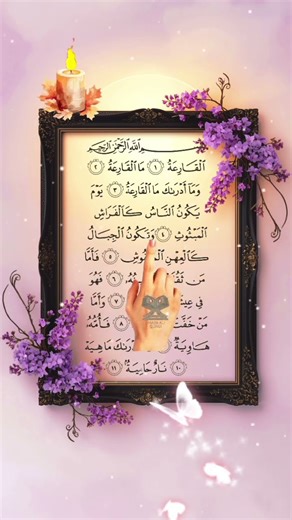 بِسْمِ اللَّهِ الرَّحْمَٰنِ الرَّحِيمِ
الْقَارِعَةُ ١ مَا الْقَارِعَةُ ٢
وَمَا أَدْرَىٰكَ مَا الْقَارِعَةُ ٣ يَوْمَ
يَكُونُ النَّاسُ كَالْفَرَاشِ
الْمَبْثُوثِ ٤ وَتَكُونُ الْجِبَالُ
كَالْعِهْنِ ٥ فَأَمَّا
مَن ٦ فَهُوَ
فِي ٧ وَأَمَّا
مَنْ خَفَّتْ ٨ فَأُمُّهُ
هَاوِيَةٌ مَا هِيَهْ
١٠ نَارٌ حَامِيَةٌ ١١